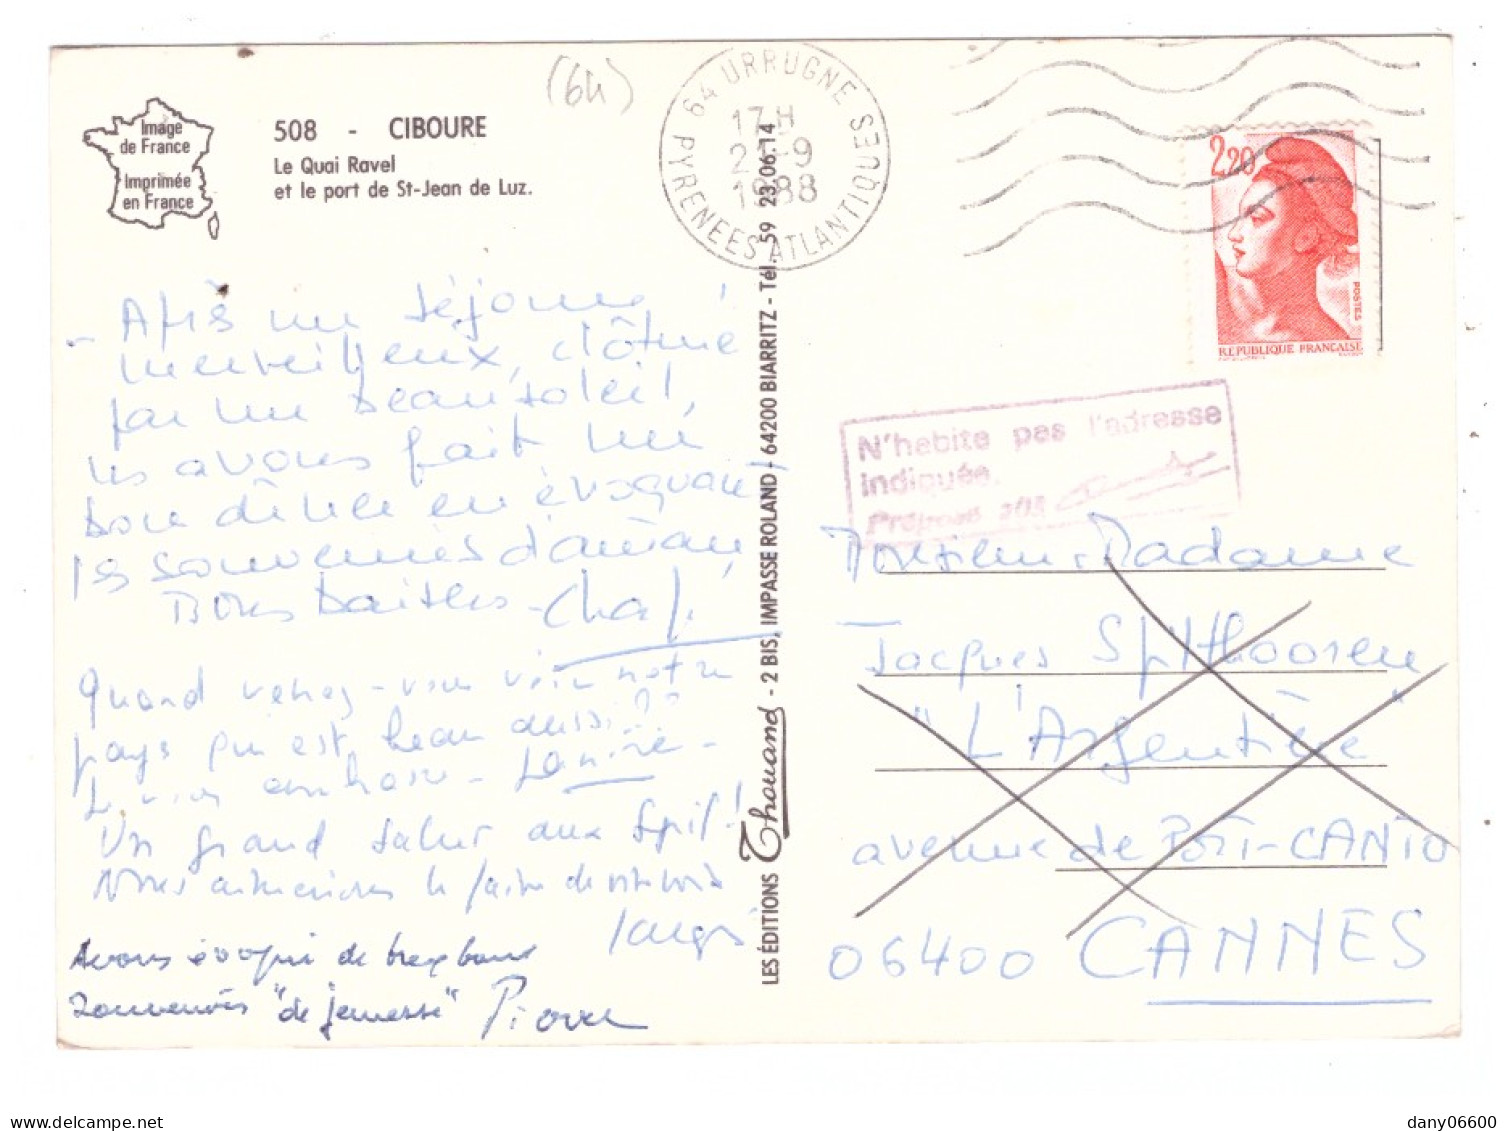 Image
de France
Imprimée
en France
508 - CIBOURE
Le Quai Ravel
et le port de St-Jean de Luz.
(64)
64 URRUGNE
17 H
21-9
1988
PYRENEES ATLANTIQUES
2,20
POSTES
REPUBLIQUE FRANCAISE
- Après un séjour
merveilleux, clôturé
par un beau soleil,
ns avons fait un
bon dîner en évoquant
les souvenirs d'antan
Bons baisers -
Quand venez-vous voir notre
pays qui est beau aussi ??
Je vous embrasse -
Un grand salut aux Spit !
Nous aimerions le plaisir de
Avons évoqué de très bons
souvenirs "de jeunesse"
LES ÉDITIONS Thouand - 2 BIS, IMPASSE ROLAND - 64200 BIARRITZ - Tél. 59 23.06.14
N'habite pas l'adresse
indiquée.
Préposé
Monsieur Madame
Jacques Splithooren
"L'Argentière"
avenue de Port-CANTO
06400 CANNES
dany06600